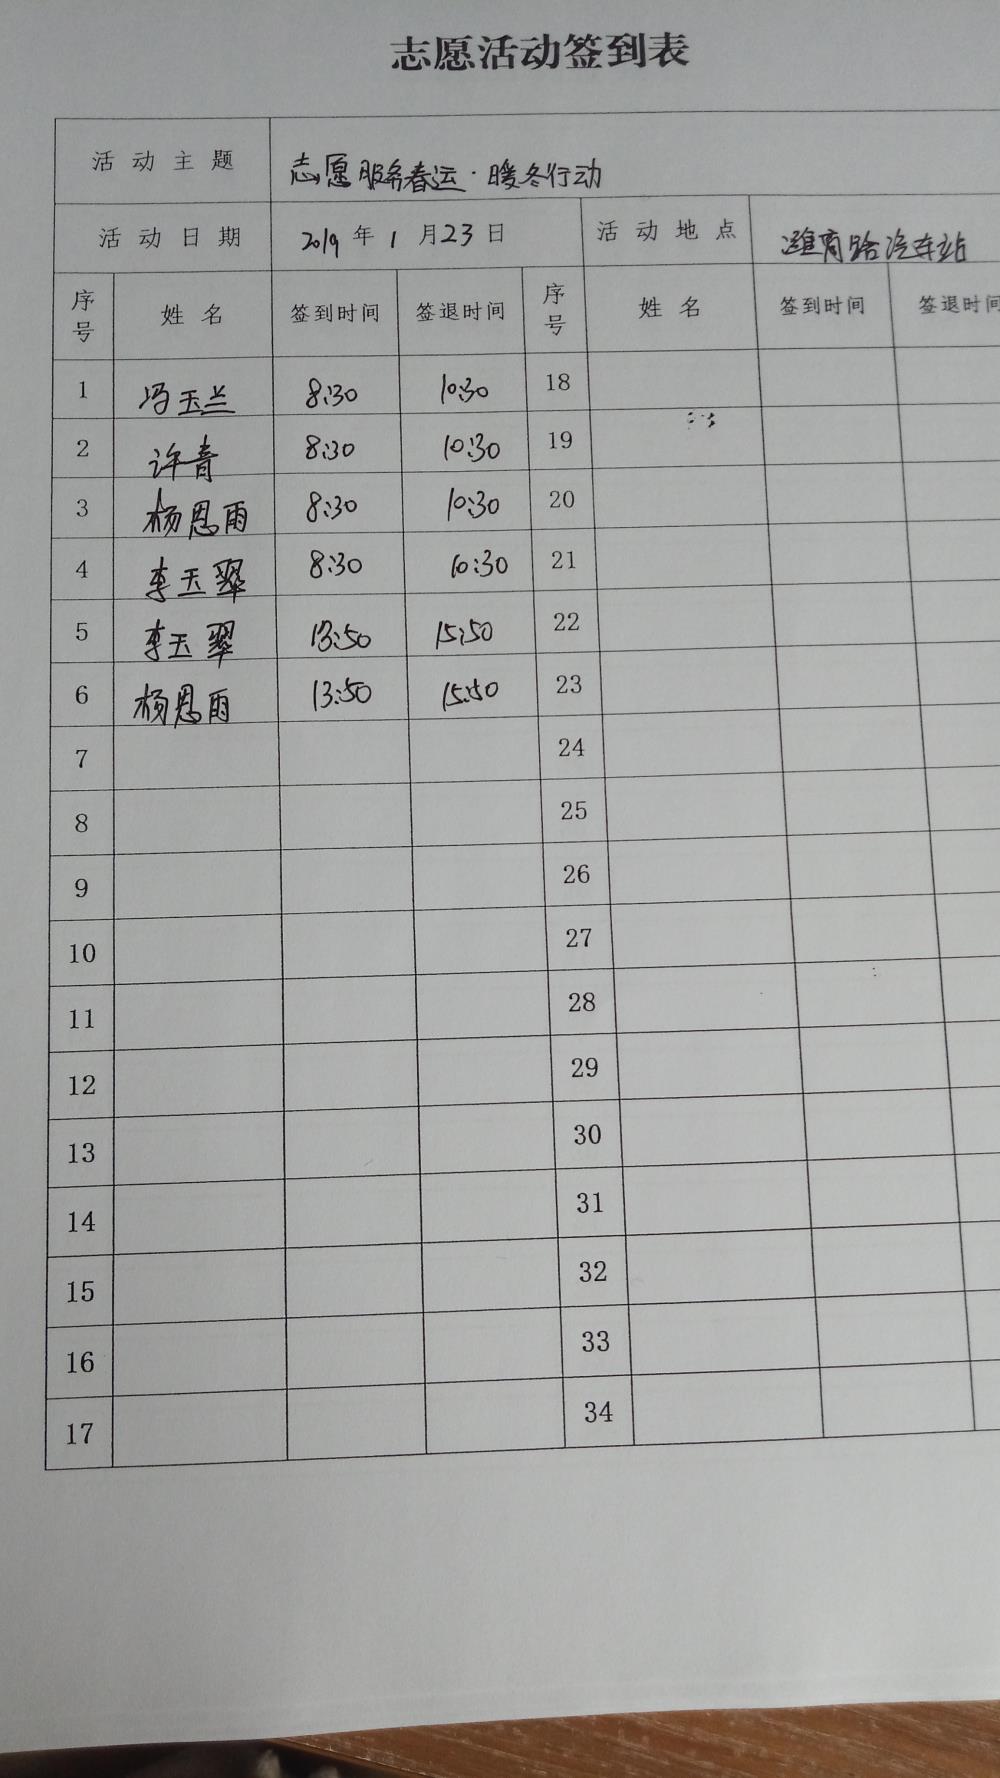 志愿活动签到表
活动主题 志愿服务春运·暖冬行动
活动日期 2019年1月23日 活动地点 潍商路汽车站
序号 姓名 签到时间 签退时间 序号 姓名 签到时间 签退时间
1 冯玉兰 8:30 10:30 18
2 许青 8:30 10:30 19
3 杨恩雨 8:30 10:30 20
4 李玉翠 8:30 10:30 21
5 李玉翠 13:50 15:50 22
6 杨恩雨 13:50 15:50 23
7 24
8 25
9 26
10 27
11 28
12 29
13 30
14 31
15 32
16 33
17 34